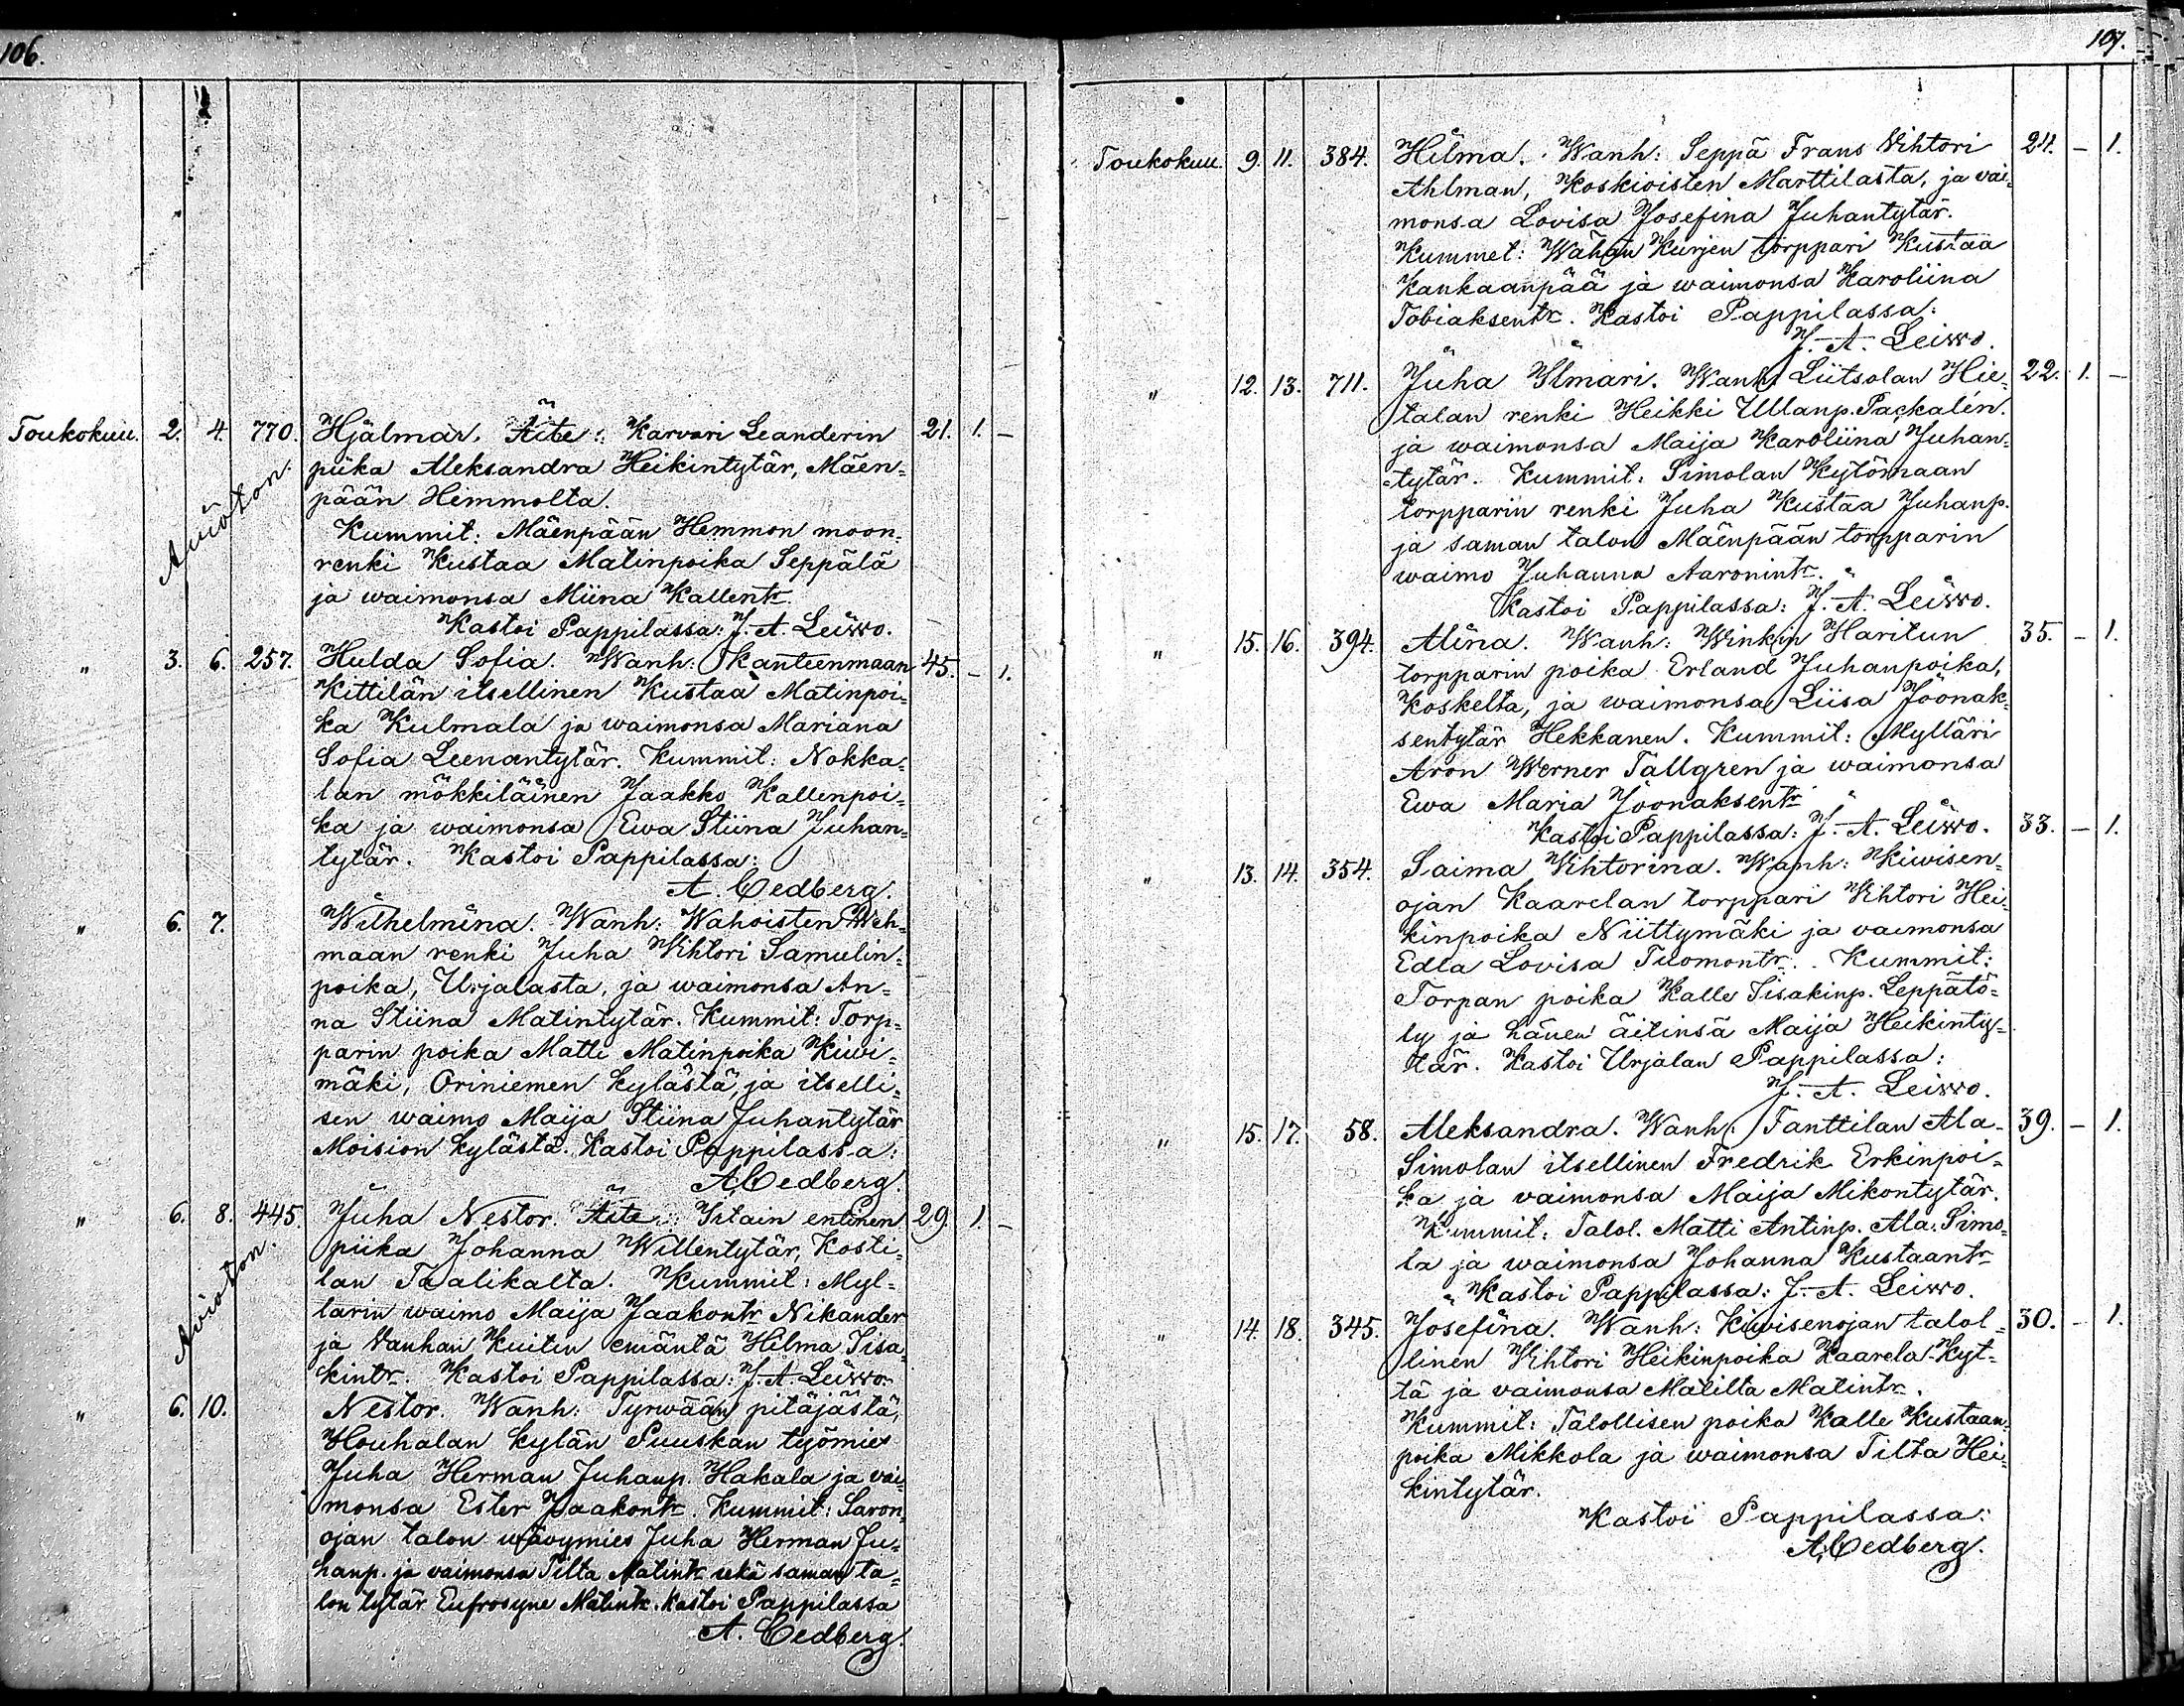 106.
Toukokuu. 2. 4. 770. Hjalmar. Äite: Karvari Leanderin 21. 1. –
Aviöton.
piika Aleksandra Heikintytär, Mäen=
pään Himmolta.
Kummit: Mäenpään Hemmon moon=
renki Kustaa Matinpoika Seppälä
ja waimonsa Miina Kallentr.
Kastoi Pappilassa: J. A. Leiwo.
" 3. 6. 257. Hulda Sofia. Wanh: Kanteenmaan 45. – 1.
Kittilän itsellinen Kustaa Matinpoi=
ka Kulmala ja waimonsa Mariana
Sofia Leenantytär. Kummit: Nokka=
lan mökkiläinen Jaakko Kallenpoi=
ka ja waimonsa Ewa Stiina Juhan=
tytär. Kastoi Pappilassa:
A. Cedberg.
" 6. 7. Wilhelmina. Wanh: Wahoisten Weh=
maan renki Juha Vihtori Samulin=
poika, Urjalasta, ja waimonsa An=
na Stiina Matintytär. Kummit: Torp=
parin poika Matti Matinpoika Kiwi=
mäki, Oriniemen kylästä, ja itselli=
sen waimo Maija Stiina Juhantytär
Moision kylästä. Kastoi Pappilassa:
A. Cedberg.
" 6. 8. 445. Juha Nestor. Äite: Iitain entinen 29. 1. –
Aviöton.
piika Johanna Willentytär, Kosti=
lan Taalikalta. Kummit: Myl=
lärin waimo Maija Jaakontr Nikander
ja Vanhan Kuitin emäntä Hilma Iisa=
kintr. Kastoi Pappilassa: J. A. Leiwo.
" 6. 10. Nestor. Wanh: Tyrwään pitäjästä,
Houhalan kylän Puuskan työmies
Juha Herman Juhanp. Hakala ja vai=
monsa Ester Jaakontr. Kummit: Saron=
ojan talon wävymies Juha Herman Ju=
hanp. ja vaimonsa Tilta Matintr sekä saman ta=
lon tytär Eufrosyne Matintr. Kastoi Pappilassa
A. Cedberg.
107.
Toukokuu. 9. 11. 384. Hilma. Wanh: Seppä Frans Vihtori 24. – 1.
Ahlman, Koskioisten Marttilasta, ja vai=
monsa Lovisa Josefina Juhantytär.
Kummet: Wähän Kurjen torppari Kustaa
Kankaanpää ja waimonsa Karoliina
Tobiaksentr. Kastoi Pappilassa:
J. A. Leiwo.
" 12. 13. 711. Juha Ilmari. Wanh: Liitsolan Hie= 22. 1. –
talan renki Heikki Ullanp. Packalén.
ja waimonsa Maija Karoliina Juhan=
=tytär. Kummit: Simolan Kytömaan
torpparin renki Juha Kustaa Juhanp.
ja saman talon Mäenpään torpparin
waimo Juhanna Aaronintr.
Kastoi Pappilassa: J. A. Leiwo.
" 15. 16. 394. Alina. Wanh: Winkin Haritun 35. – 1.
torpparin poika Erland Juhanpoika,
Koskelta, ja waimonsa Liisa Joonak=
sentytär Hekkanen. Kummit: Mylläri
Aron Werner Tallgren ja waimonsa
Ewa Maria Joonaksentr
Kastoi Pappilassa: J. A. Leiwo. 33. – 1.
" 13. 14. 354. Saima Vihtorina. Wanh: Kiwisen=
ojan Kaarelan torppari Vihtori Hei=
kinpoika Niittymäki ja vaimonsa
Edla Lovisa Tuomontr. Kummit:
Torpan poika Kalle Iisakinp. Leppätö=
ly ja hänen äitinsä Maija Heikinty=
tär. Kastoi Urjalan Pappilassa:
J. A. Leiwo.
" 15. 17. 58. Aleksandra. Wanh: Fanttilan Ala- 39. – 1.
Simolan itsellinen Fredrik Erkinpoi=
ka ja vaimonsa Maija Mikontytär.
Kummit: Talol. Matti Antinp. Ala-Simo=
la ja waimonsa Johanna Kustaantr
Kastoi Pappilassa: J. A. Leiwo.
" 14. 18. 345. Josefina. Wanh: Kiwisenojan talol= 30. – 1.
linen Vihtori Heikinpoika Kaarela-Kyt=
tä ja vaimonsa Matilta Matintr.
Kummit: Talollisen poika Kalle Kustaan=
poika Mikkola ja waimonsa Tilta Hei=
kintytär.
Kastoi Pappilassa:
A. Cedberg.